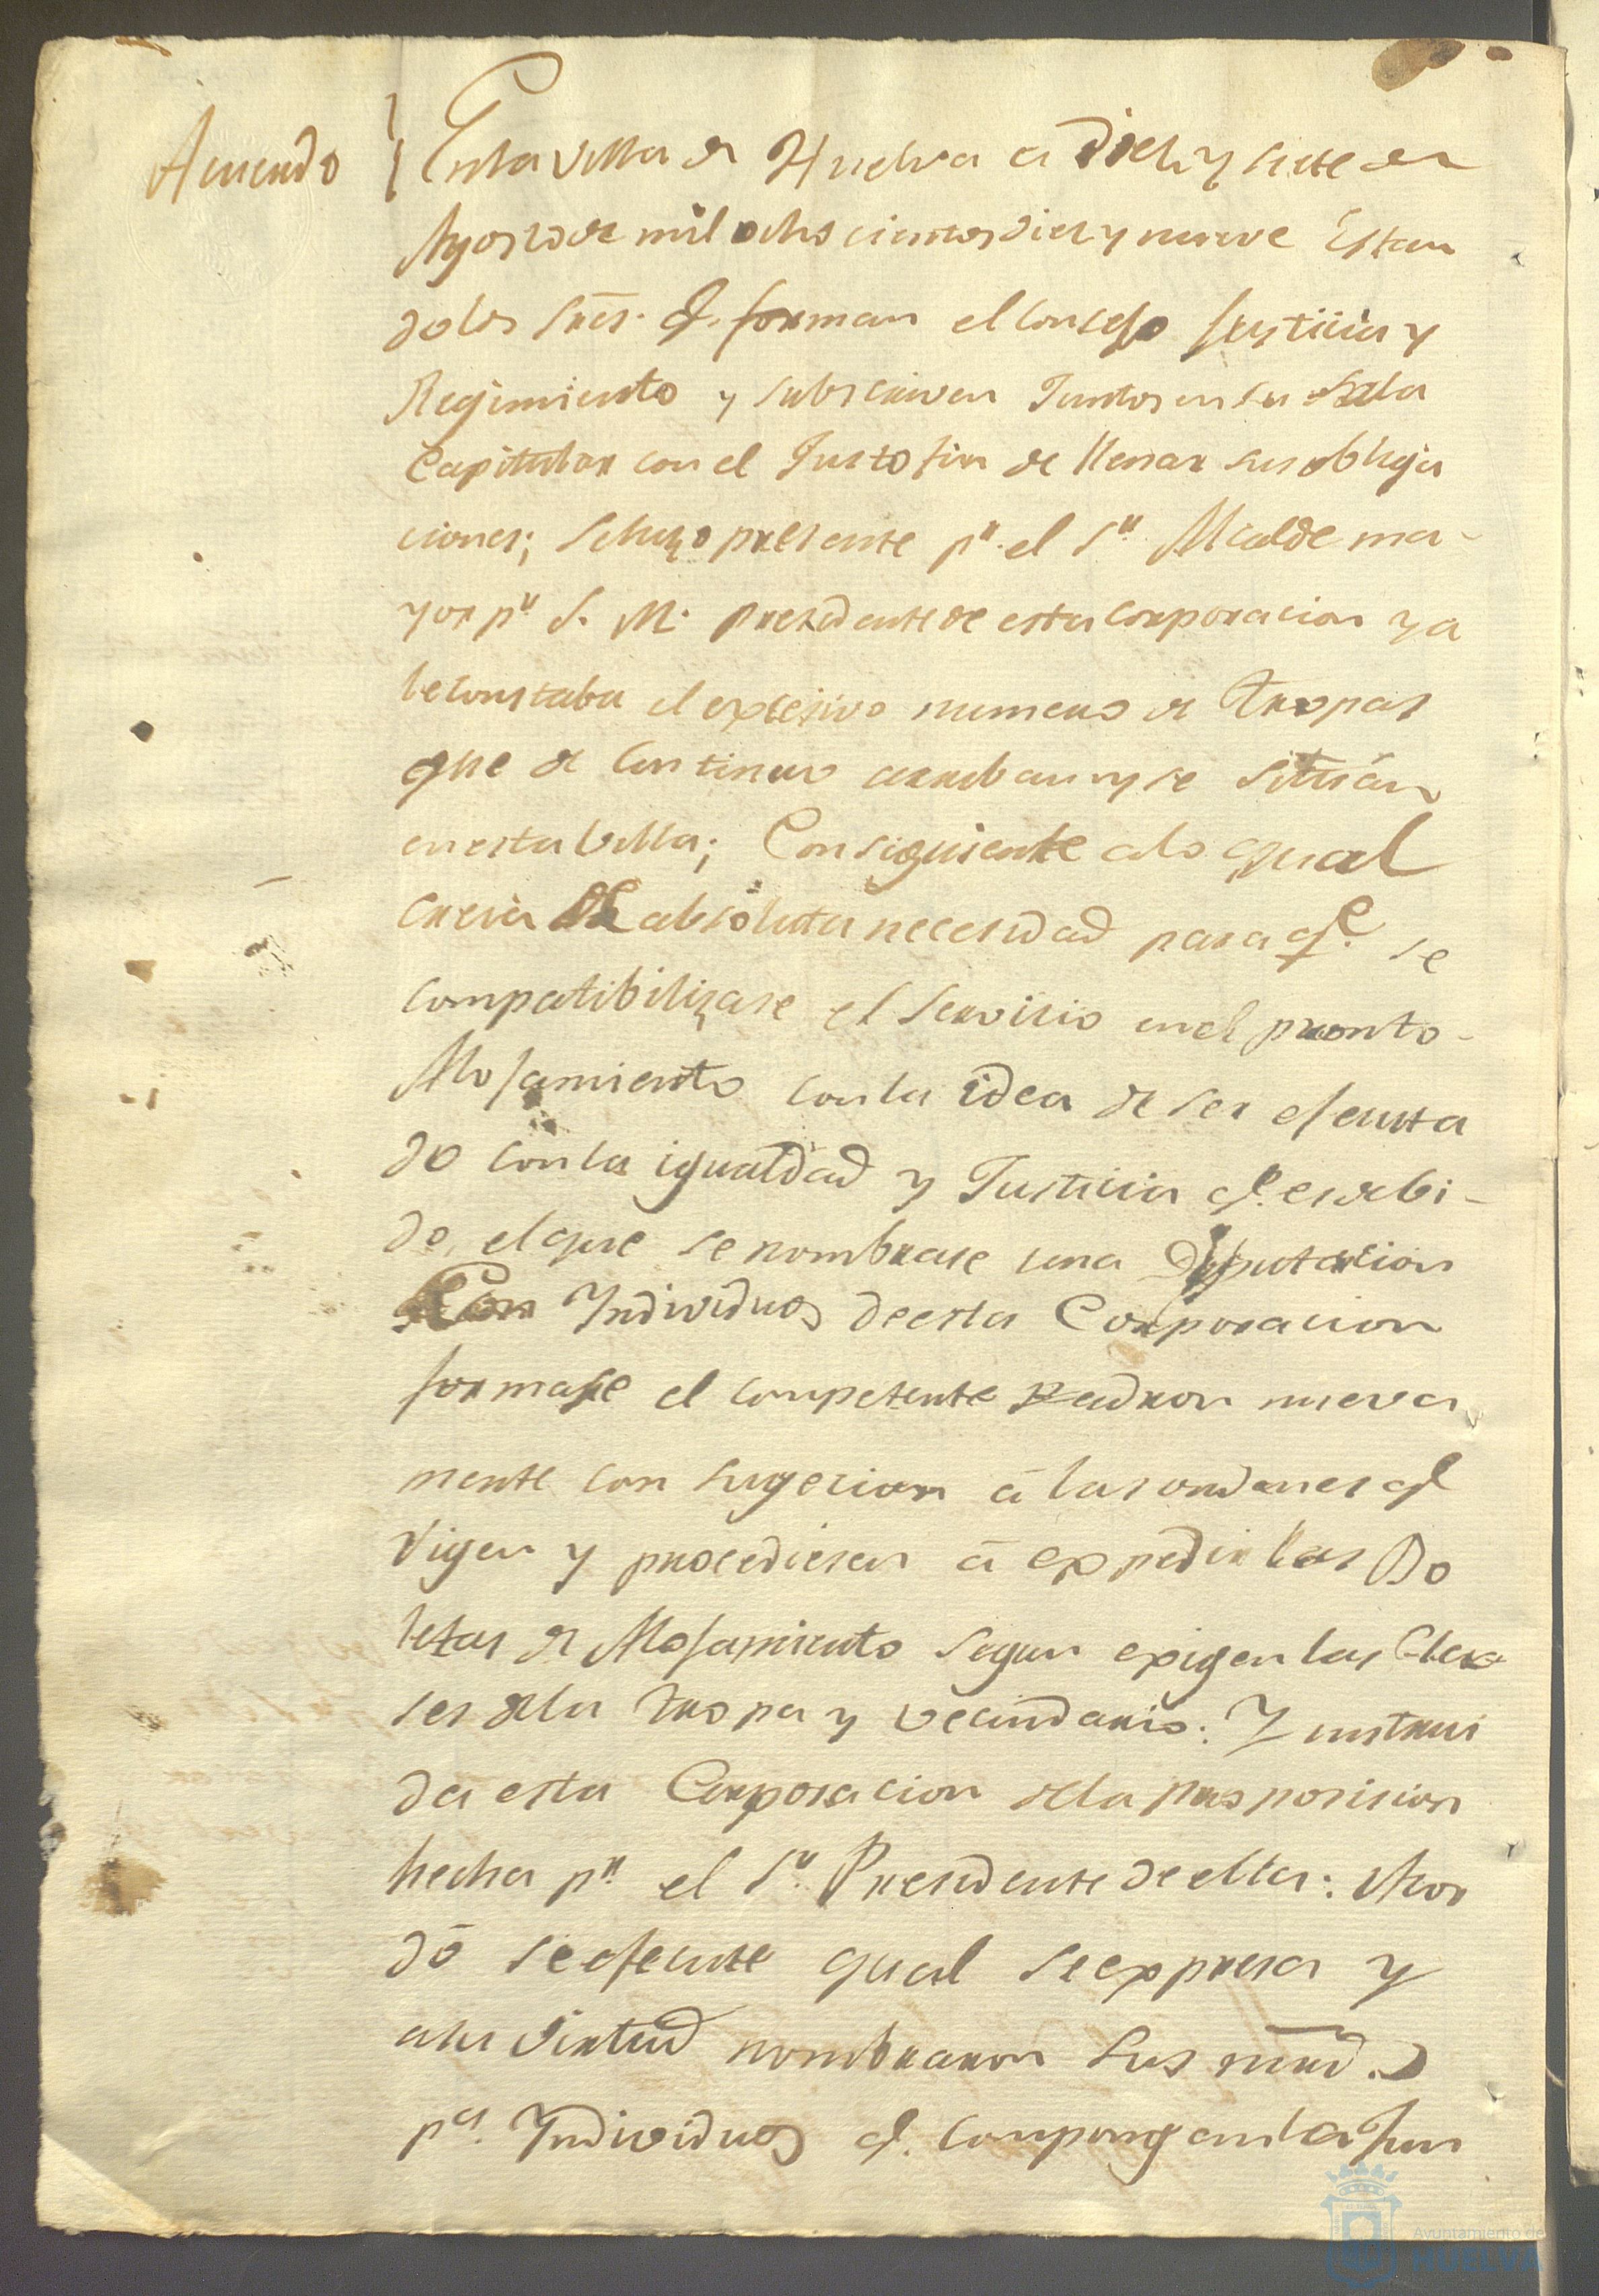 Acuerdo
En la villa de Huelva a diez y siete de
Agosto de mil ocho cientos diez y nueve Estan
do los Sres. q. forman el Concejo Justicia y
Regimiento y subscriven Juntos en su Sala
Capitular con el Justo fin de llenar sus obliga
ciones; se hizo presente pr. el Sr. Alcalde ma-
yor pr. S. M. presidente de esta corporacion ya
le constaba el excesivo numero de tropas
que de continuo arriban y se sitúan
en esta villa; Consiguiente a lo qual
creia de absoluta necesidad para qe. se
compatibilizase el servicio en el pronto-
Alojamiento con la idea de ser ejecuta
do con la igualdad y Justicia q. es debi-
do, el que se nombrase una Diputacion
Con Individuos de esta Corporacion
formase el competente Padron nueva
mente con sugecion á las ordenes q.
vigen y procediesen á expedir las Bo
letas de Alojamiento segun exigen las Cla
ses de la tropa y vecindario. Y instrui
da esta Corporacion de la proposicion
hecha pr. el Sr. Presidente de ella: Acor
dó se ejecute qual se expresa y
a su virtud nombraron sus mrd.s
pa. Individuos q. compongan la Jun
Ayuntamiento de
HUELVA